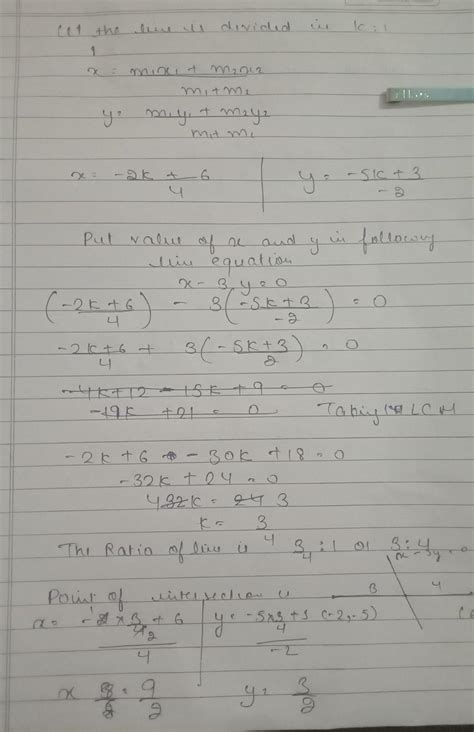 Let the line is divided in k:1
1
x = m1x1 + m2x2
m1+m2
y = m1y1 + m2y2
m1+m2
x = -2k + 6 / 4
y = -5k + 3 / -2
Put value of x and y in following
line equation
x - 3y = 0
(-2k+6 / 4) - 3(-5k+3 / -2) = 0
-2k+6 / 4 + 3(-5k+3 / 2) = 0
-4k+12 - 15k + 9 = 0
-19k + 21 = 0 Taking LCM
-2k + 6 - 30k + 18 = 0
-32k + 24 = 0
4 32k = 24 3
k = 3 / 4
The Ratio of line is 3/4 : 1 or 3:4
x-3y=0
Point of intersection is 3 4
x = -2 × 3/4 2 + 6 / 4
y = -5×3/4 + 3 / -2 (-2,-5)
x 3/2 = 9/2 y = 3/2